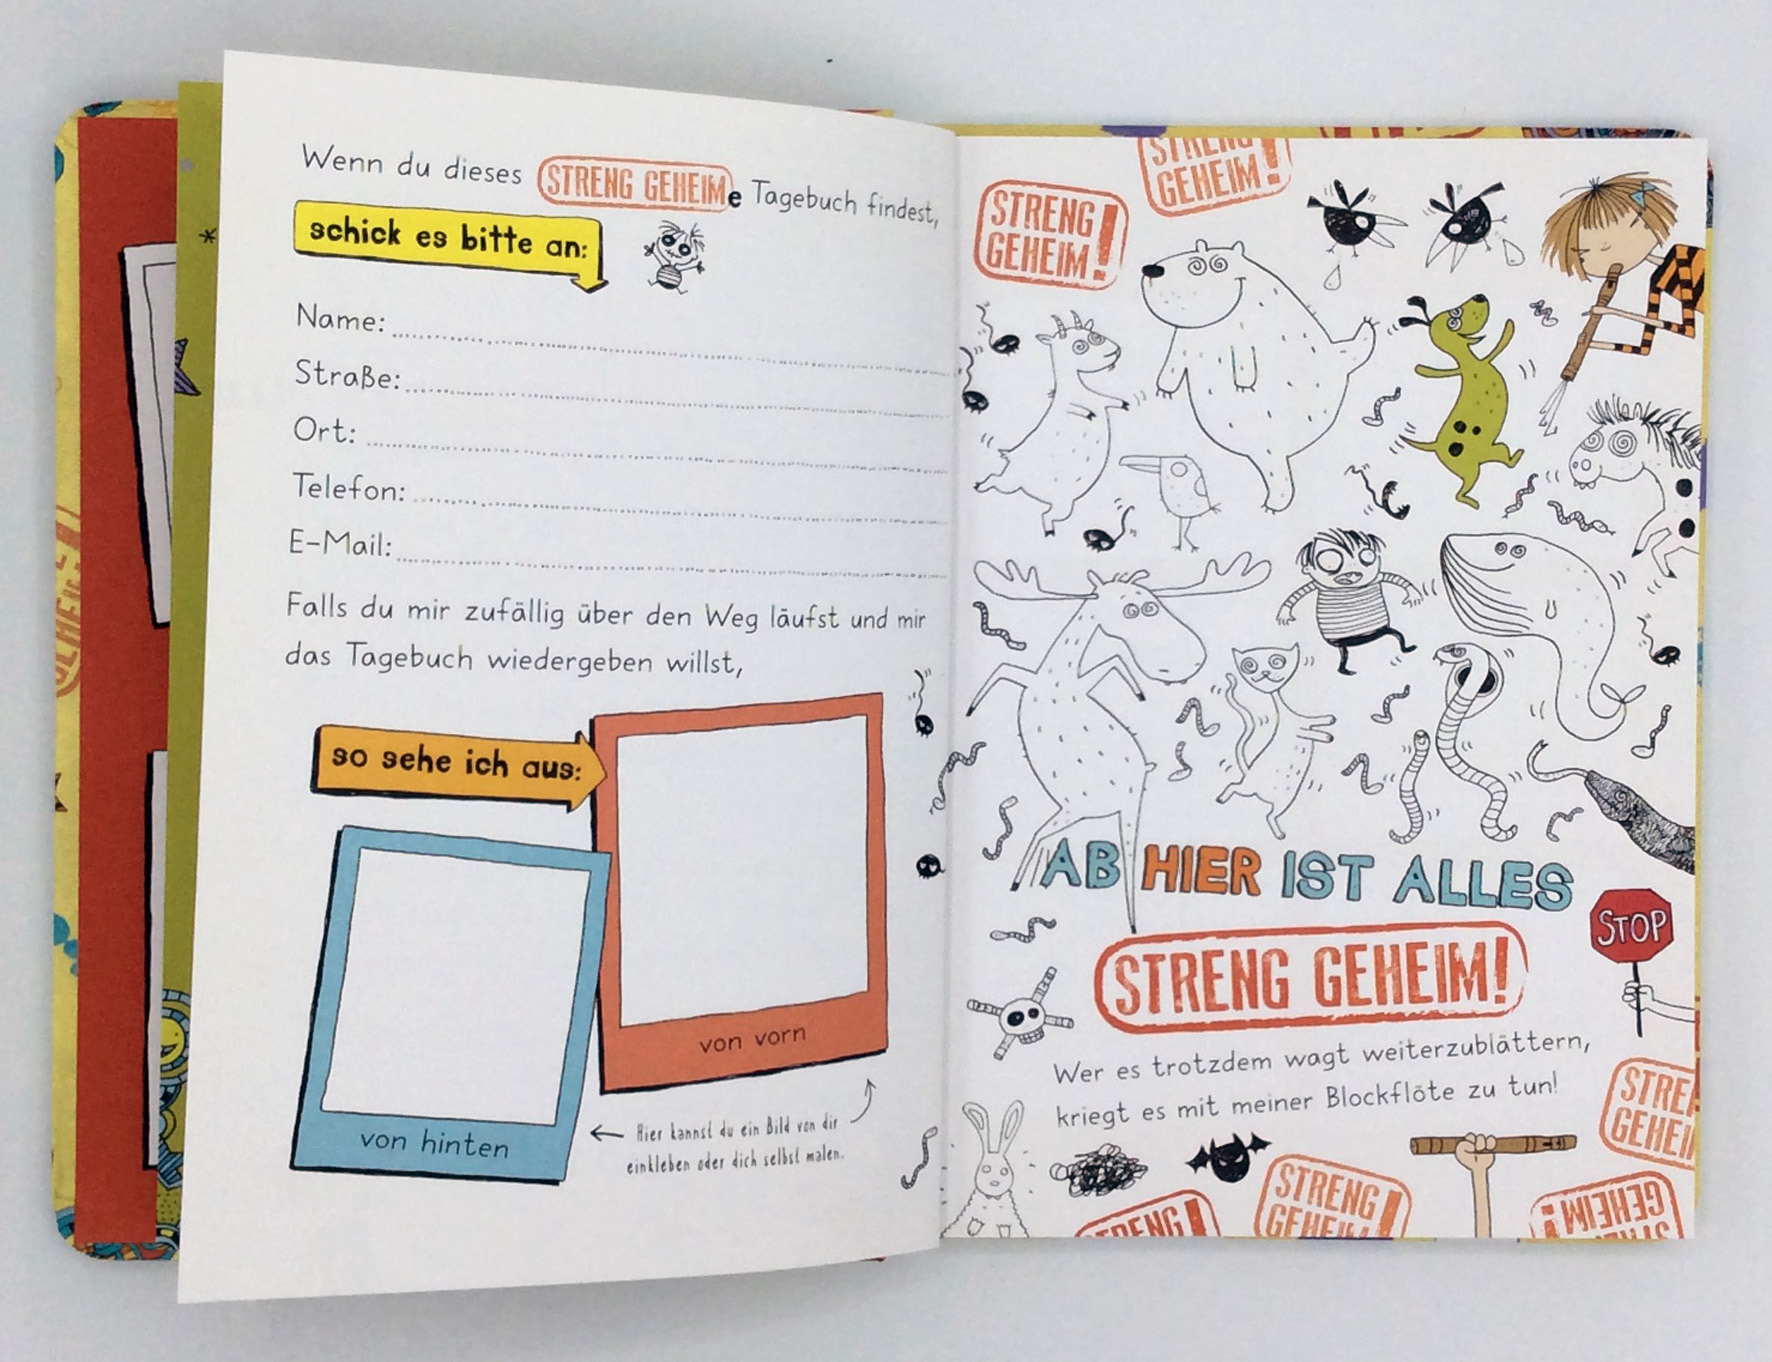 Wenn du dieses STRENG GEHEIMe Tagebuch findest,
schick es bitte an:
Name:
Straße:
Ort:
Telefon:
E-Mail:
Falls du mir zufällig über den Weg läufst und mir
das Tagebuch wiedergeben willst,
so sehe ich aus:
von vorn
von hinten
Hier kannst du ein Bild von dir
einkleben oder dich selbst malen.
STRENG
GEHEIM!
STRENG
GEHEIM!
AB HIER IST ALLES
STRENG GEHEIM!
STOP
Wer es trotzdem wagt weiterzublättern,
kriegt es mit meiner Blockflöte zu tun!
STRE
GEHEI
STRENG
GEHEIM!
STRENG!
GEHEIM!